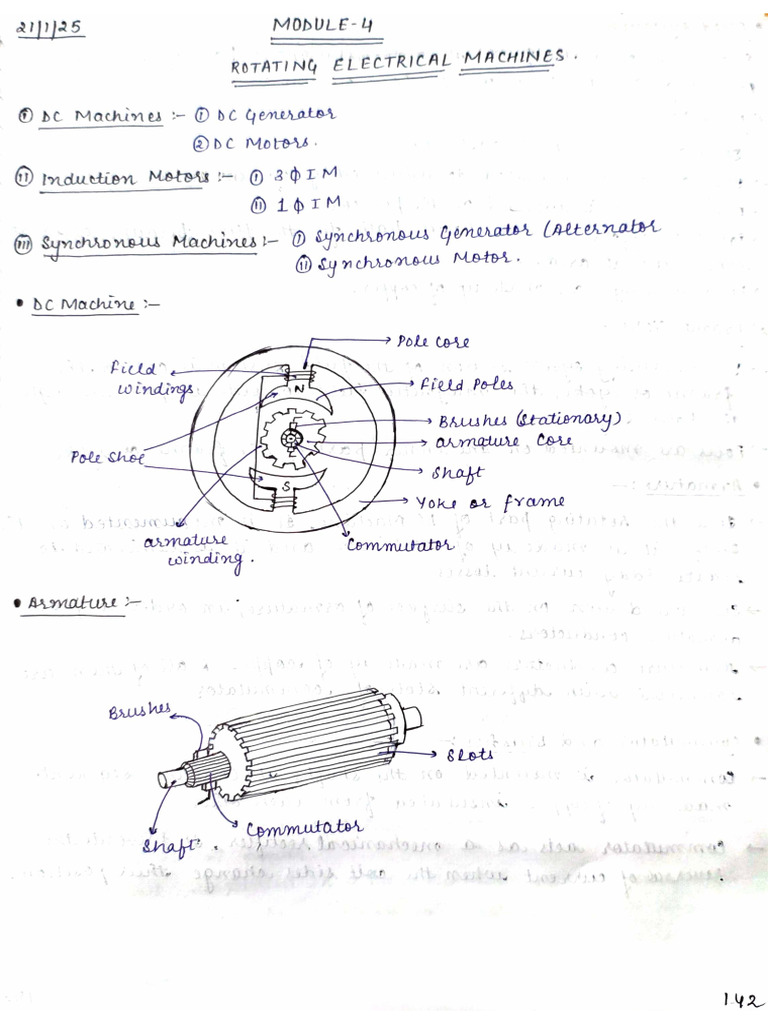 21/1/25
MODULE-4
ROTATING ELECTRICAL MACHINES.
① DC Machines :- ① DC Generator
② DC Motors.
ⓘⓘ Induction Motors :- ⓘ 3ΦIM
ⓘⓘ 1ΦIM
ⓘⓘⓘ Synchronous Machines :- ⓘ Synchronous Generator (Alternator
ⓘⓘ Synchronous Motor.
• DC Machine :-
Pole Core
Field
windings
N
Field Poles
Brushes (Stationary).
armature Core
Pole Shoe
Shaft
S
Yoke or frame
armature
winding.
Commutator
• Armature :-
Brushes
Slots
Commutator
Shaft.
142